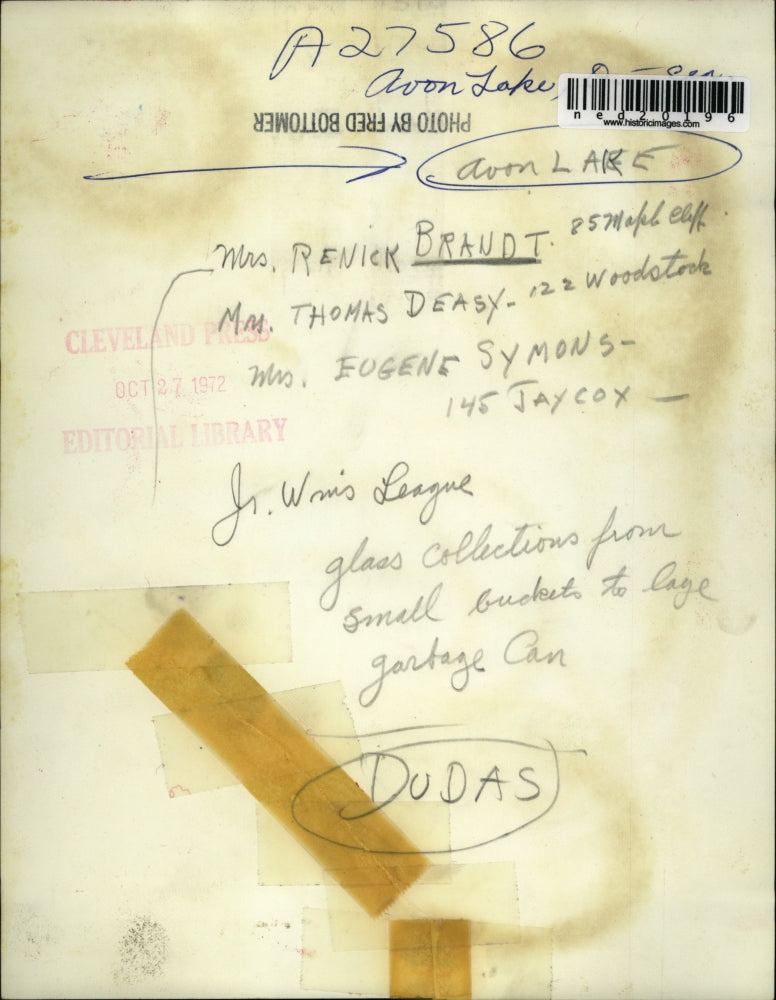 A27586
Avon Lake,
ned20196
www.historicimages.com
PHOTO BY FRED BOTTOMER
Avon LAKE
Mrs. RENICK BRANDT. 85 Maple Cliff
Mrs. THOMAS DEASY - 122 Woodstock
CLEVELAND PRESS
Mrs. EUGENE SYMONS -
OCT 27 1972
145 JAYCOX -
EDITORIAL LIBRARY
Jr. Wm's League
glass collections from
small buckets to lage
garbage Can
DUDAS